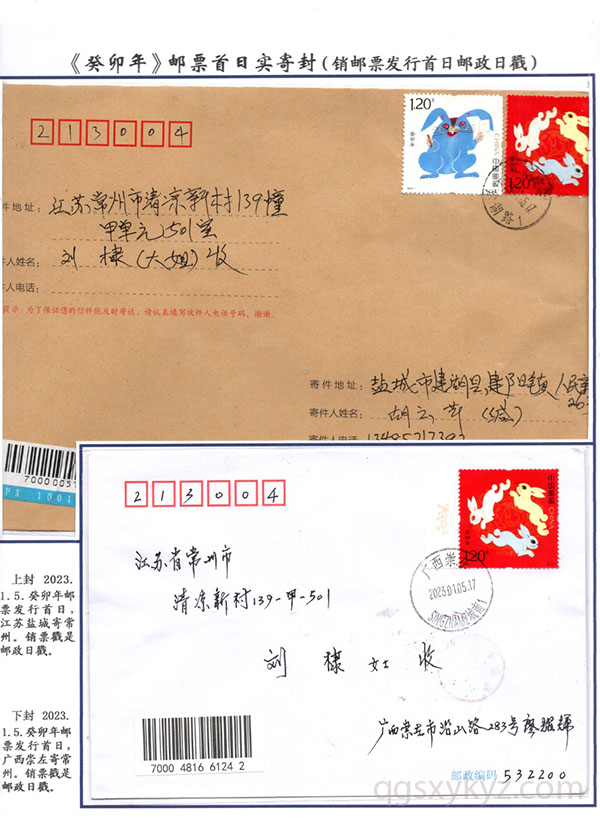 《癸卯年》邮票首日实寄封(销邮票发行首日邮政日戳)
213004
1.20
癸卯年
中国邮政 CHINA
1.20
件地址: 江苏常州市清凉新村139幢
甲单元1501室
件人姓名: 刘棣(大姐)收
件人电话:
提示:为了保证您的信件能及时寄达,请认真填写收件人电话号码,谢谢。
寄件地址: 盐城市建湖县建阳镇人民
26-
寄件人姓名: 胡云
寄件人电话
7000005
PX 1001
213004
中国邮政
癸卯年
1.20
广西崇左
2023.01.05.17
江苏省常州市
清凉新村139-甲-501
刘棣 女士 收
7000 4816 6124 2
广西崇左市沿山路283号
邮政编码 532200
上封 2023.
1.5.癸卯年邮
票发行首日,
江苏盐城寄常
州。销票戳是
邮政日戳。
下封 2023.
1.5.癸卯年邮
票发行首日,
广西崇左寄常
州。销票戳是
邮政日戳。
qgsxykyz.com